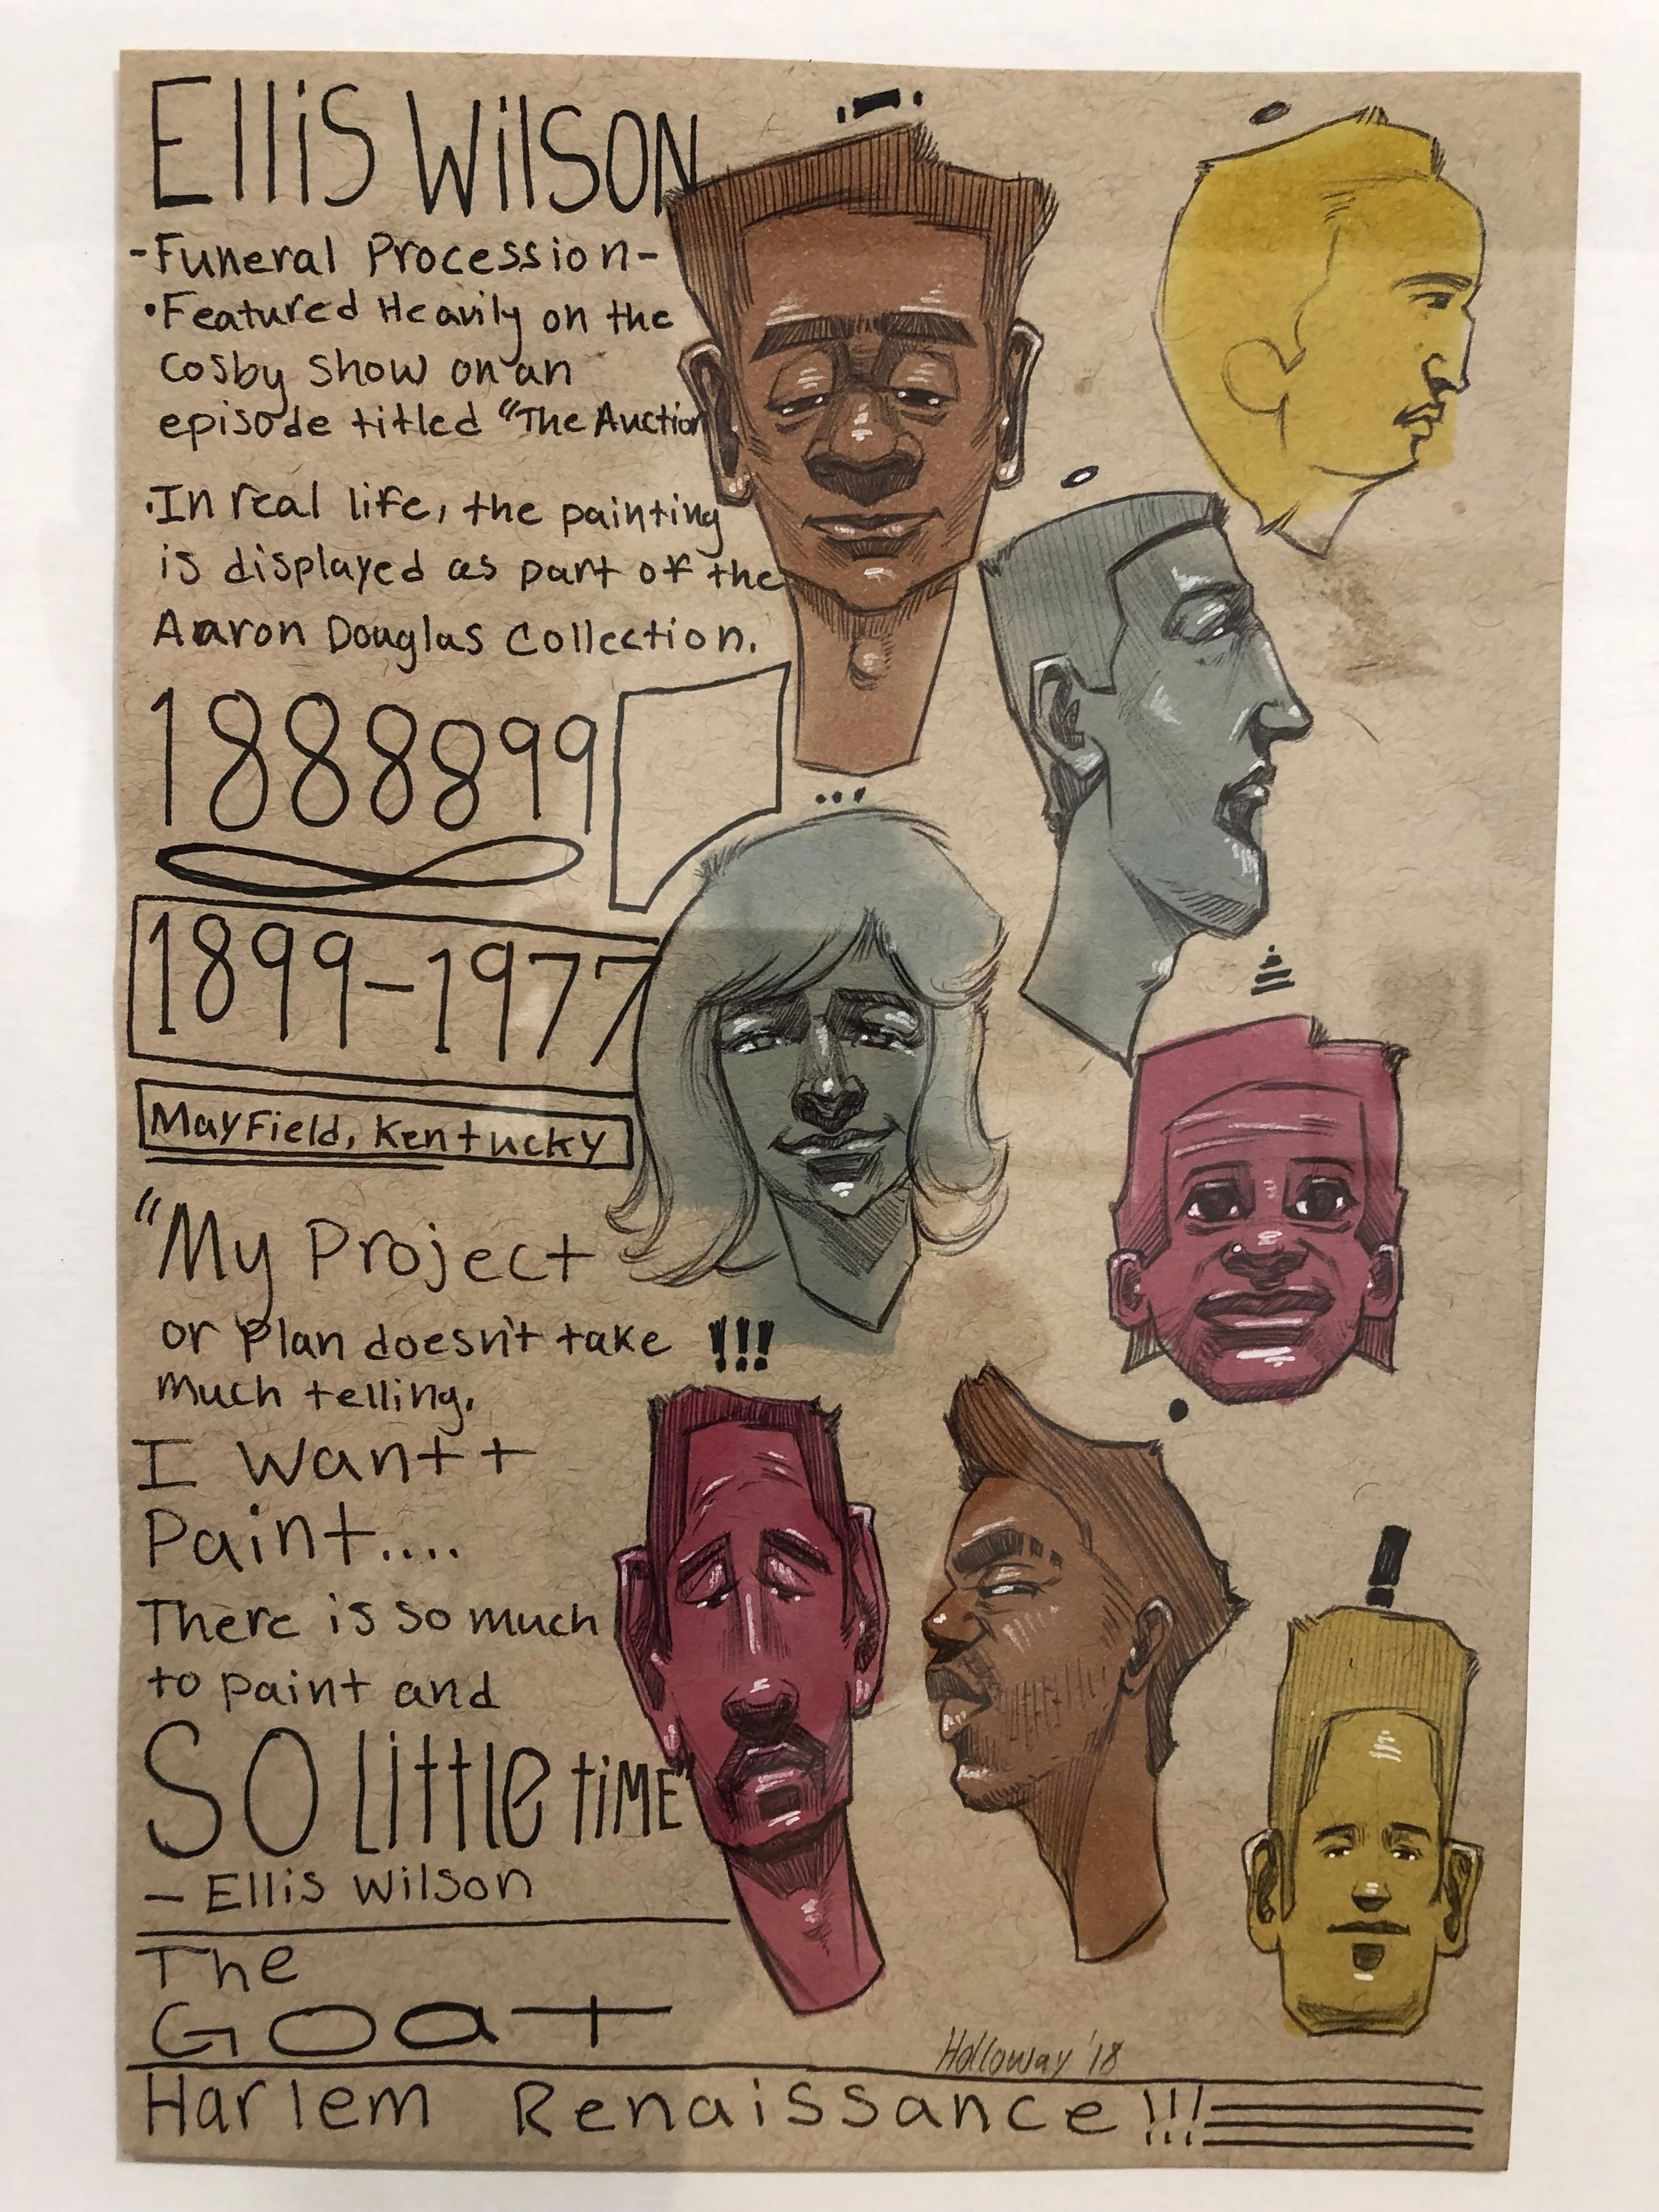 Ellis Wilson
-Funeral Procession-
•Featured Heavily on the
Cosby Show on an
episode titled "The Auction
•In real life, the painting
is displayed as part of the
Aaron Douglas Collection.
1888899
1899-1977
Mayfield, Kentucky
"My Project
or Plan doesn't take
much telling.
I want t
Paint....
There is so much
to paint and
SO Little TIME"
- Ellis Wilson
The
GOat
Holloway '18
Harlem Renaissance!!!
...
!!!
!